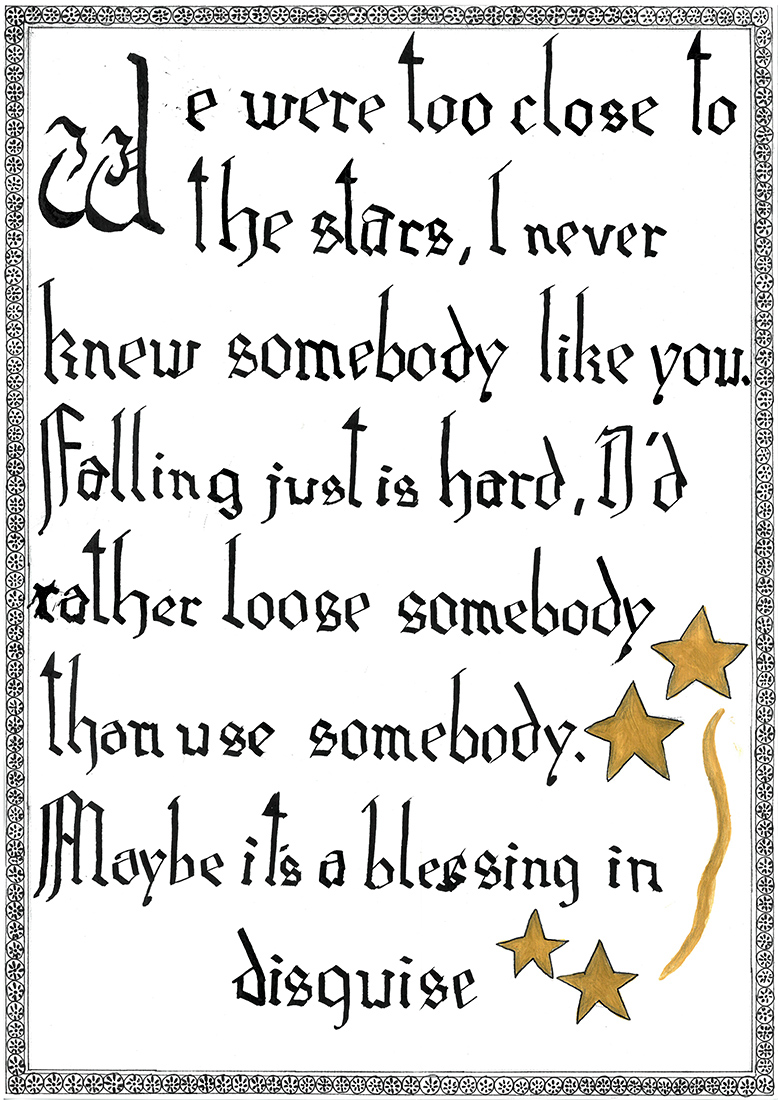 We were too close to
the stars, I never
knew somebody like you.
Falling just is hard, I'd
rather loose somebody
than use somebody.
Maybe it's a blessing in
disguise